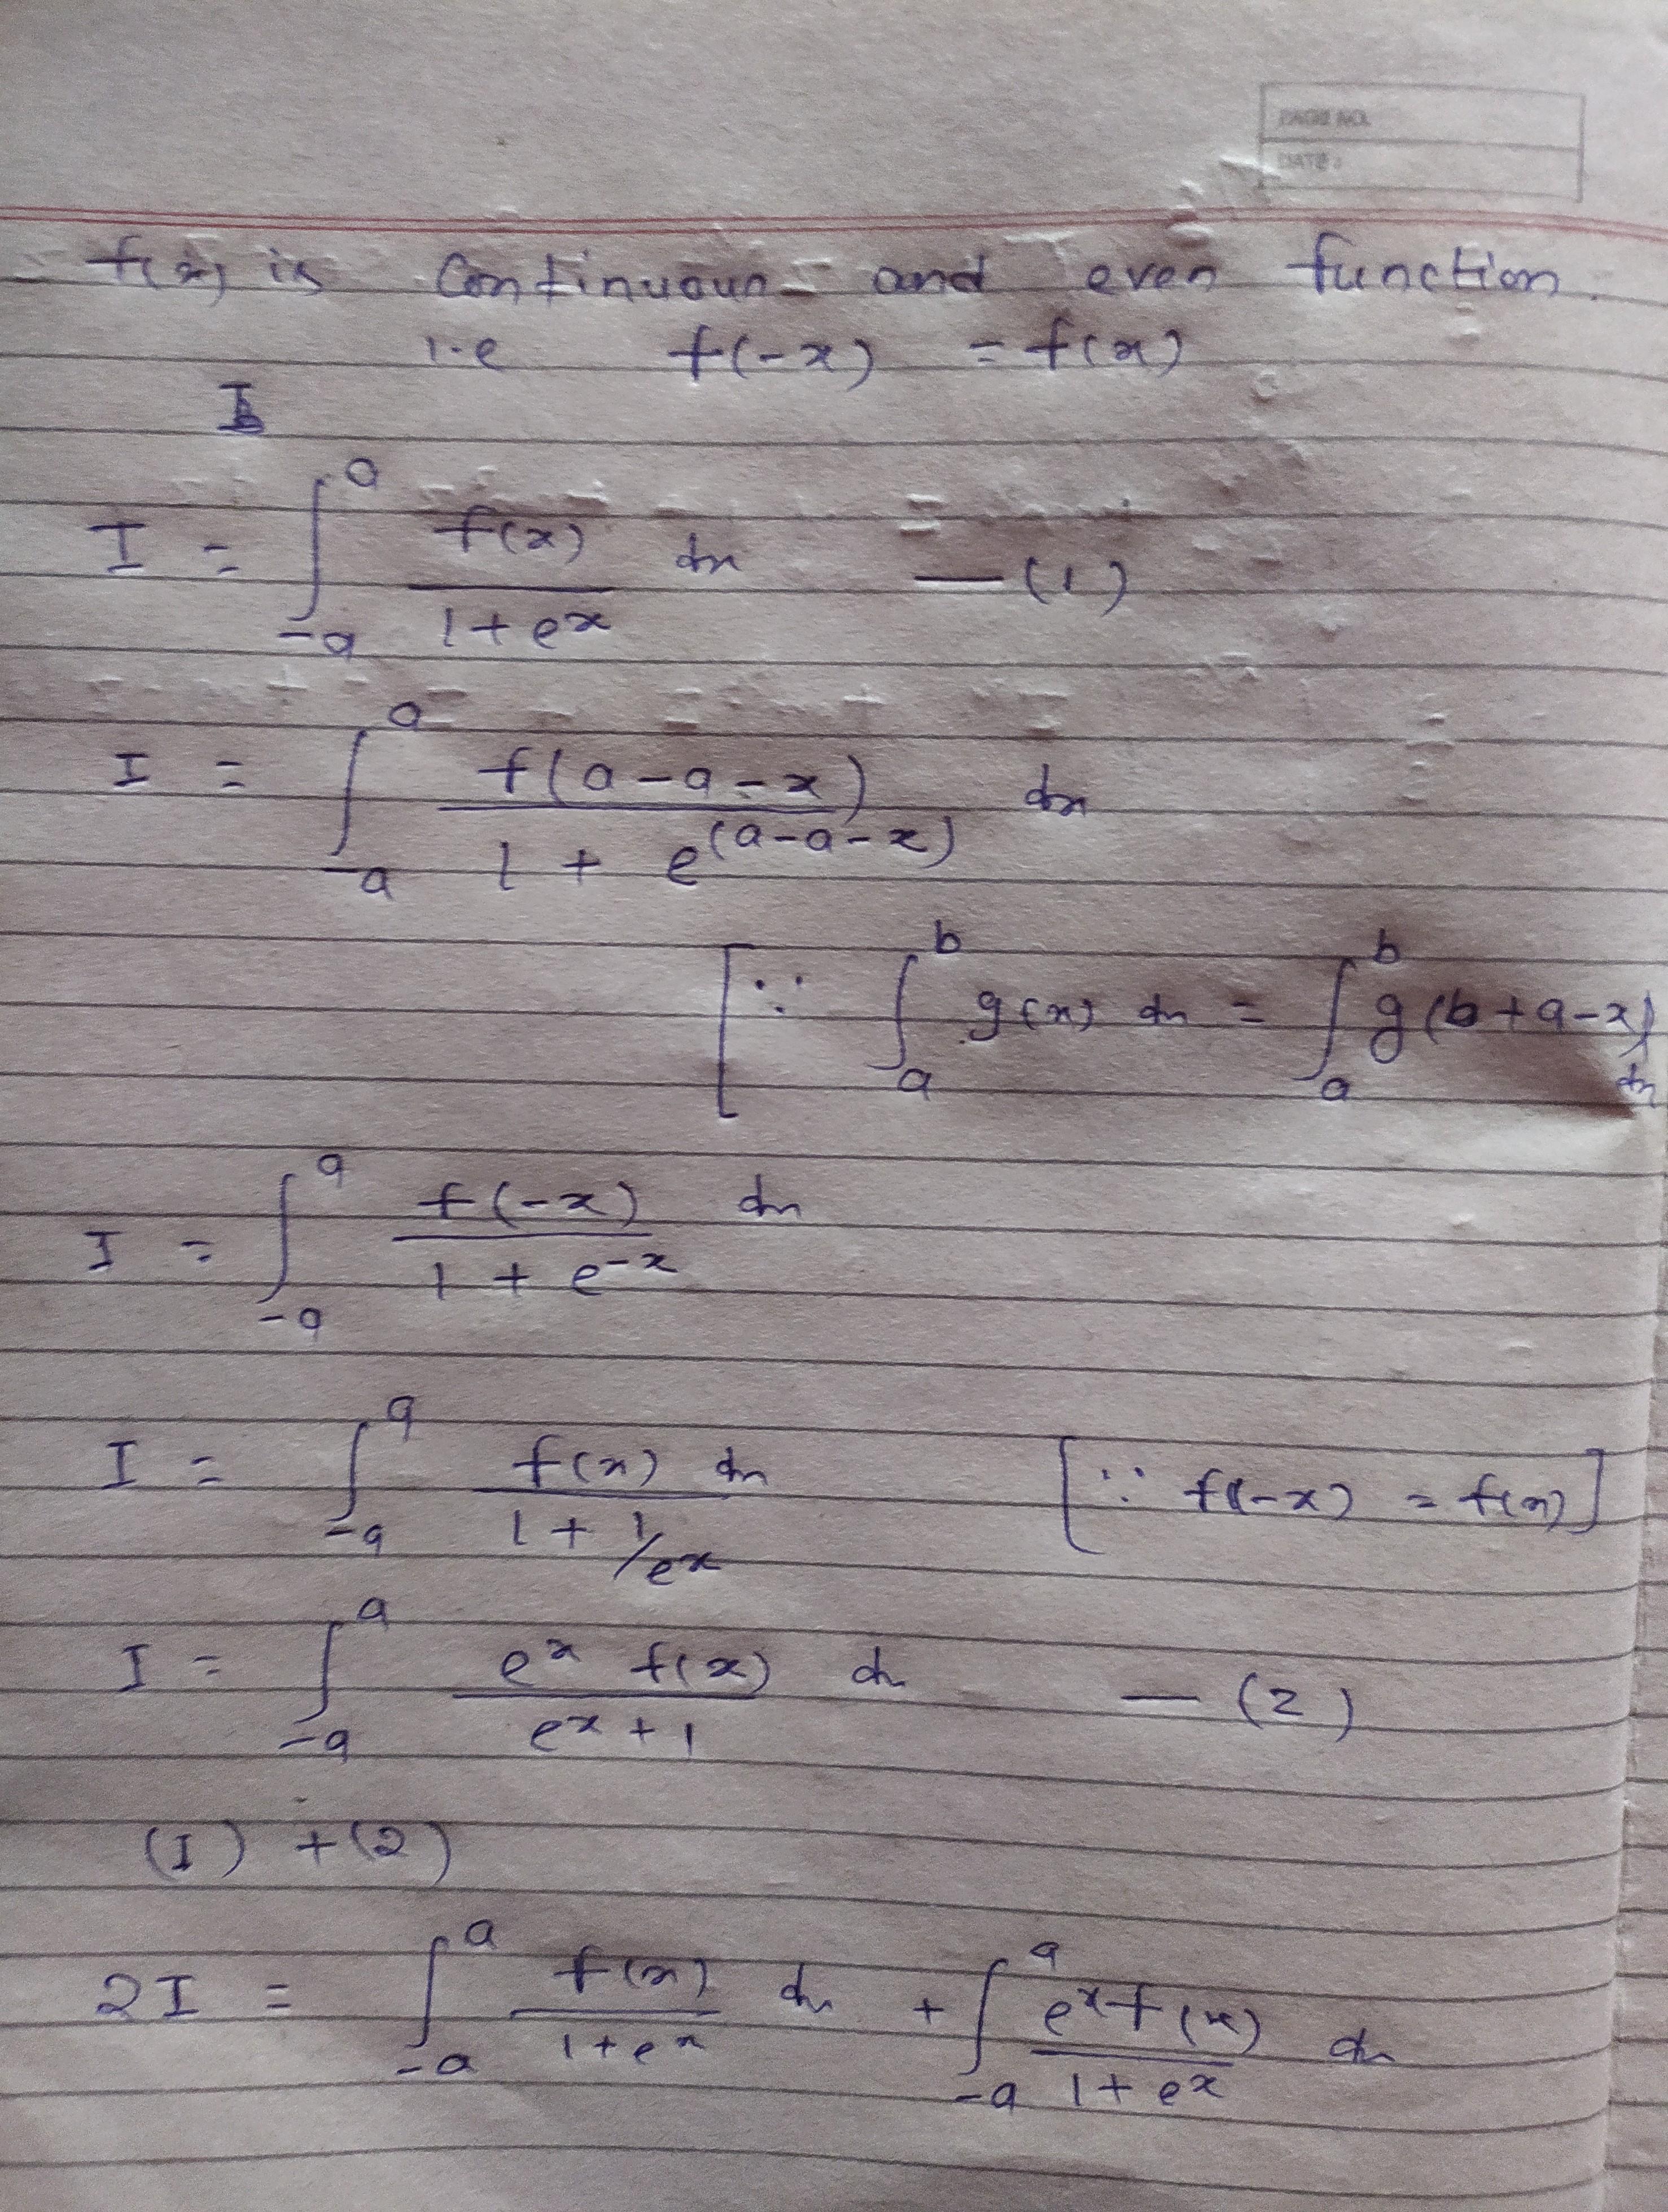 PAGE NO.
DATE :
f(x) is continuous and even function.
i.e f(-x) = f(x)
I
I = ∫_{-a}^{a} f(x)/(1+e^x) dx — (1)
I = ∫_{-a}^{a} f(a-a-x)/(1 + e^{(a-a-x)}) dx
[∵ ∫_{a}^{b} g(x) dx = ∫_{a}^{b} g(b+a-x) dx
I = ∫_{-a}^{a} f(-x)/(1 + e^{-x}) dx
I = ∫_{-a}^{a} f(x) dx/(1 + 1/e^x) [∵ f(-x) = f(x)]
I = ∫_{-a}^{a} e^x f(x)/(e^x + 1) dx — (2)
(I) + (2)
2I = ∫_{-a}^{a} f(x)/(1+e^x) dx + ∫_{-a}^{a} e^x f(x)/(1+e^x) dx